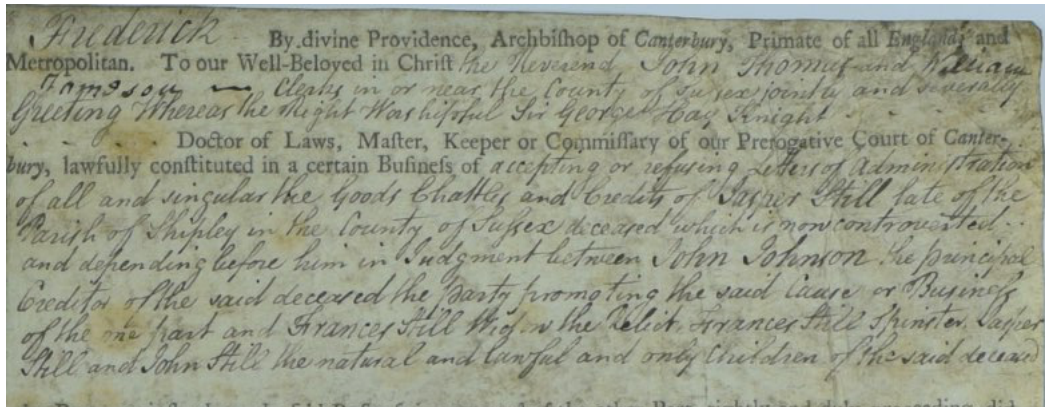 Frederick By divine Providence, Archbiſhop of Canterbury, Primate of all England, and
Metropolitan. To our Well-Beloved in Chriſt the Reverend John Thomas and William
Jameson — Clerks in or near the County of Sussex jointly and severally
Greeting Whereas the Right Worshipful Sir George Hay Knight
Doctor of Laws, Maſter, Keeper or Commiſſary of our Prerogative Court of Canter-
bury, lawfully conſtituted in a certain Buſineſs of accepting or refusing Letters of Administration
of all and singular the Goods Chattles and Credits of Jasper Still late of the
Parish of Shipley in the County of Sussex deceased which is now controverted
and depending before him in Judgment between John Johnson the principal
Creditor of the said deceased the party promoting the said Cause or Business
of the one part and Frances Still Widow the Relict, Frances Still Spinster, Jasper
Still and John Still the natural and lawful and only Children of the said deceased